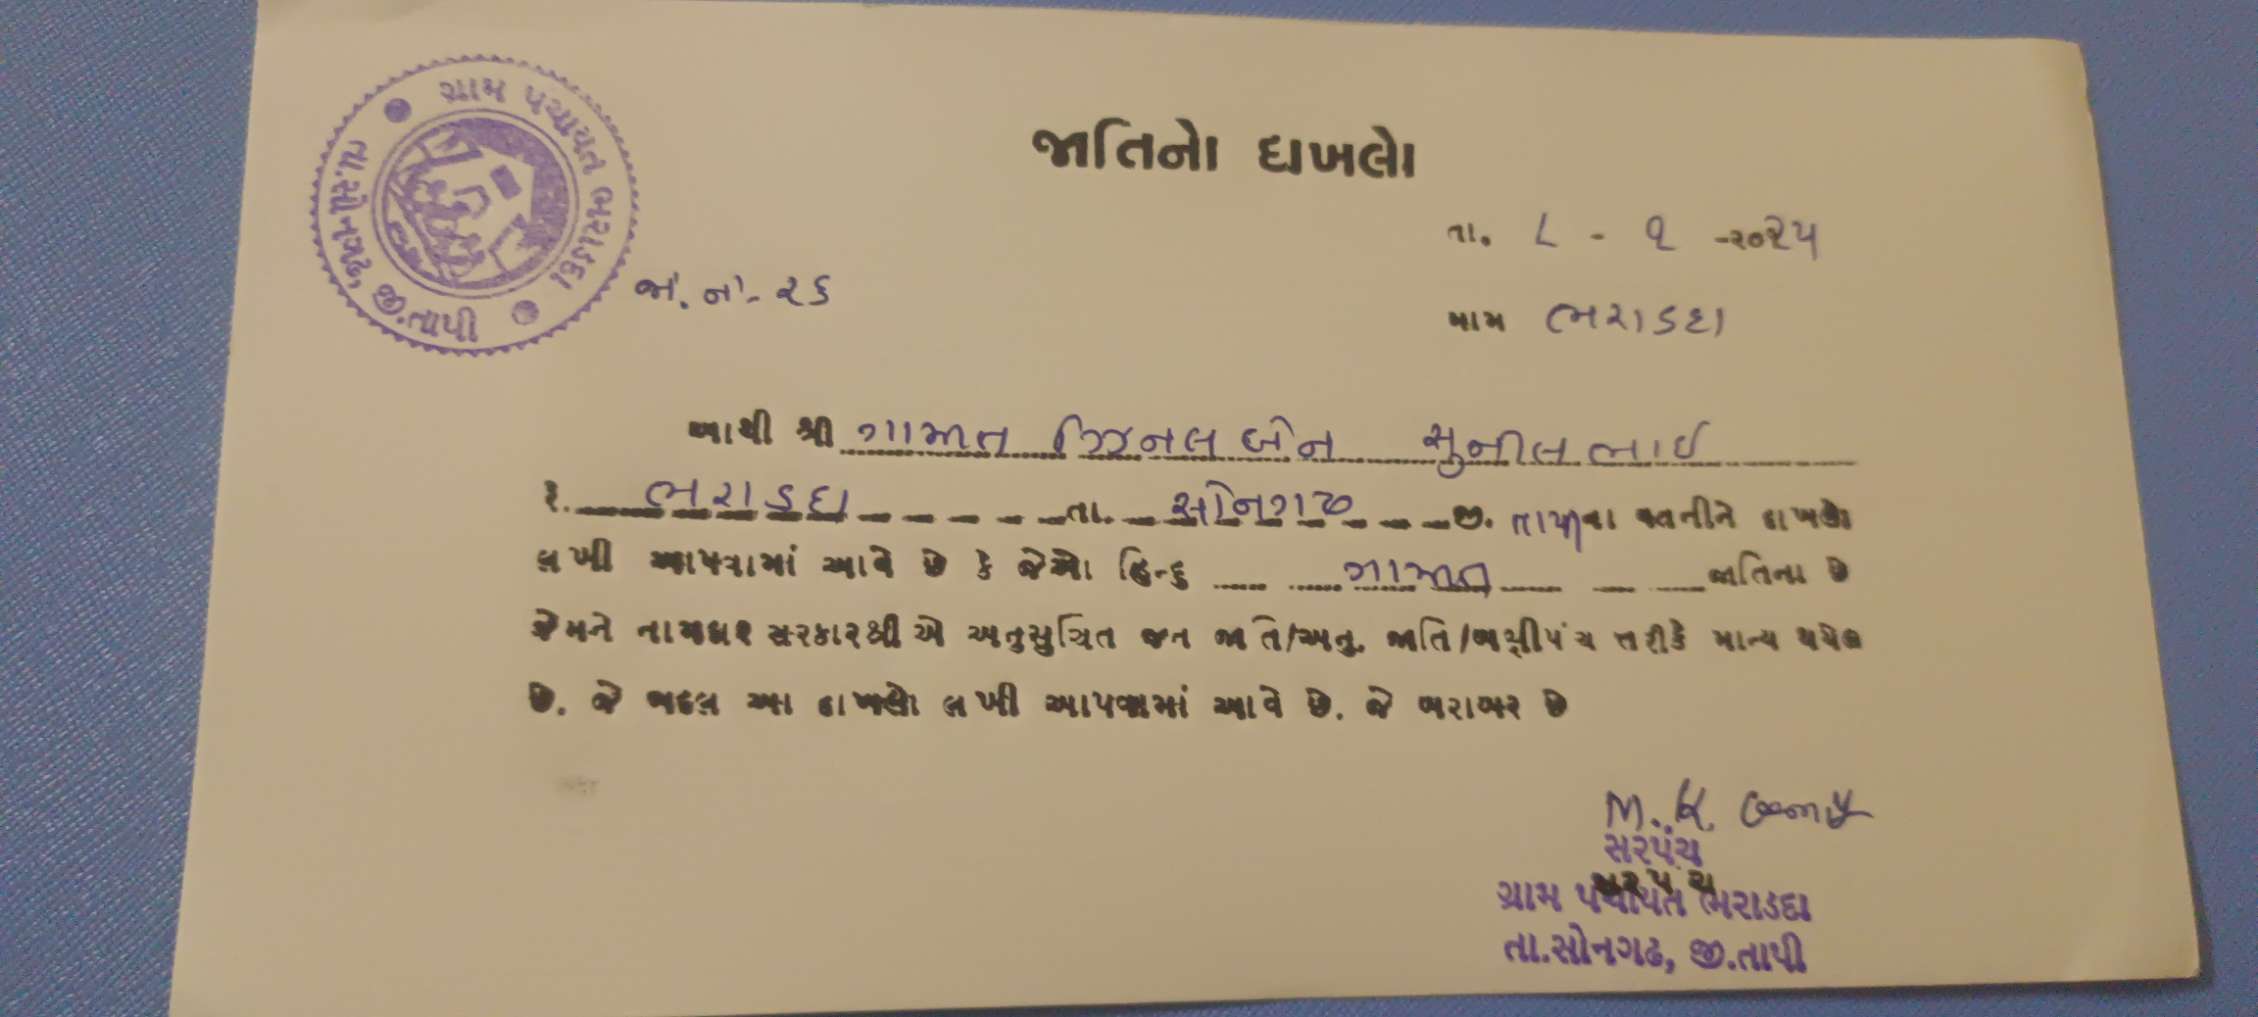 ગ્રામ પંચાયત ભરાડદા
તા.સોનગઢ, જી.તાપી
જાતિનો દાખલો
તા. ૮ - ૧ -૨૦૨૫
જા. નં - ૨૬
ગામ ભરાડદા
આથી શ્રી ગામીત ઝિનલબેન સુનીલભાઈ
રે. ભરાડદા તા. સોનગઢ જી. તાપીના વતનીને દાખલો
લખી આપવામાં આવે છે કે જેઓ હિન્દુ ગામીત જાતિના છે
જેમને નામદાર સરકારશ્રી એ અનુસુચિત જન જાતિ/અનુ. જાતિ/બક્ષીપંચ તરીકે માન્ય થયેલ
છે. જે બદલ આ દાખલો લખી આપવામાં આવે છે. જે બરાબર છે
M. K.
સરપંચ
સરપંચ
ગ્રામ પંચાયત ભરાડદા
તા.સોનગઢ, જી.તાપી